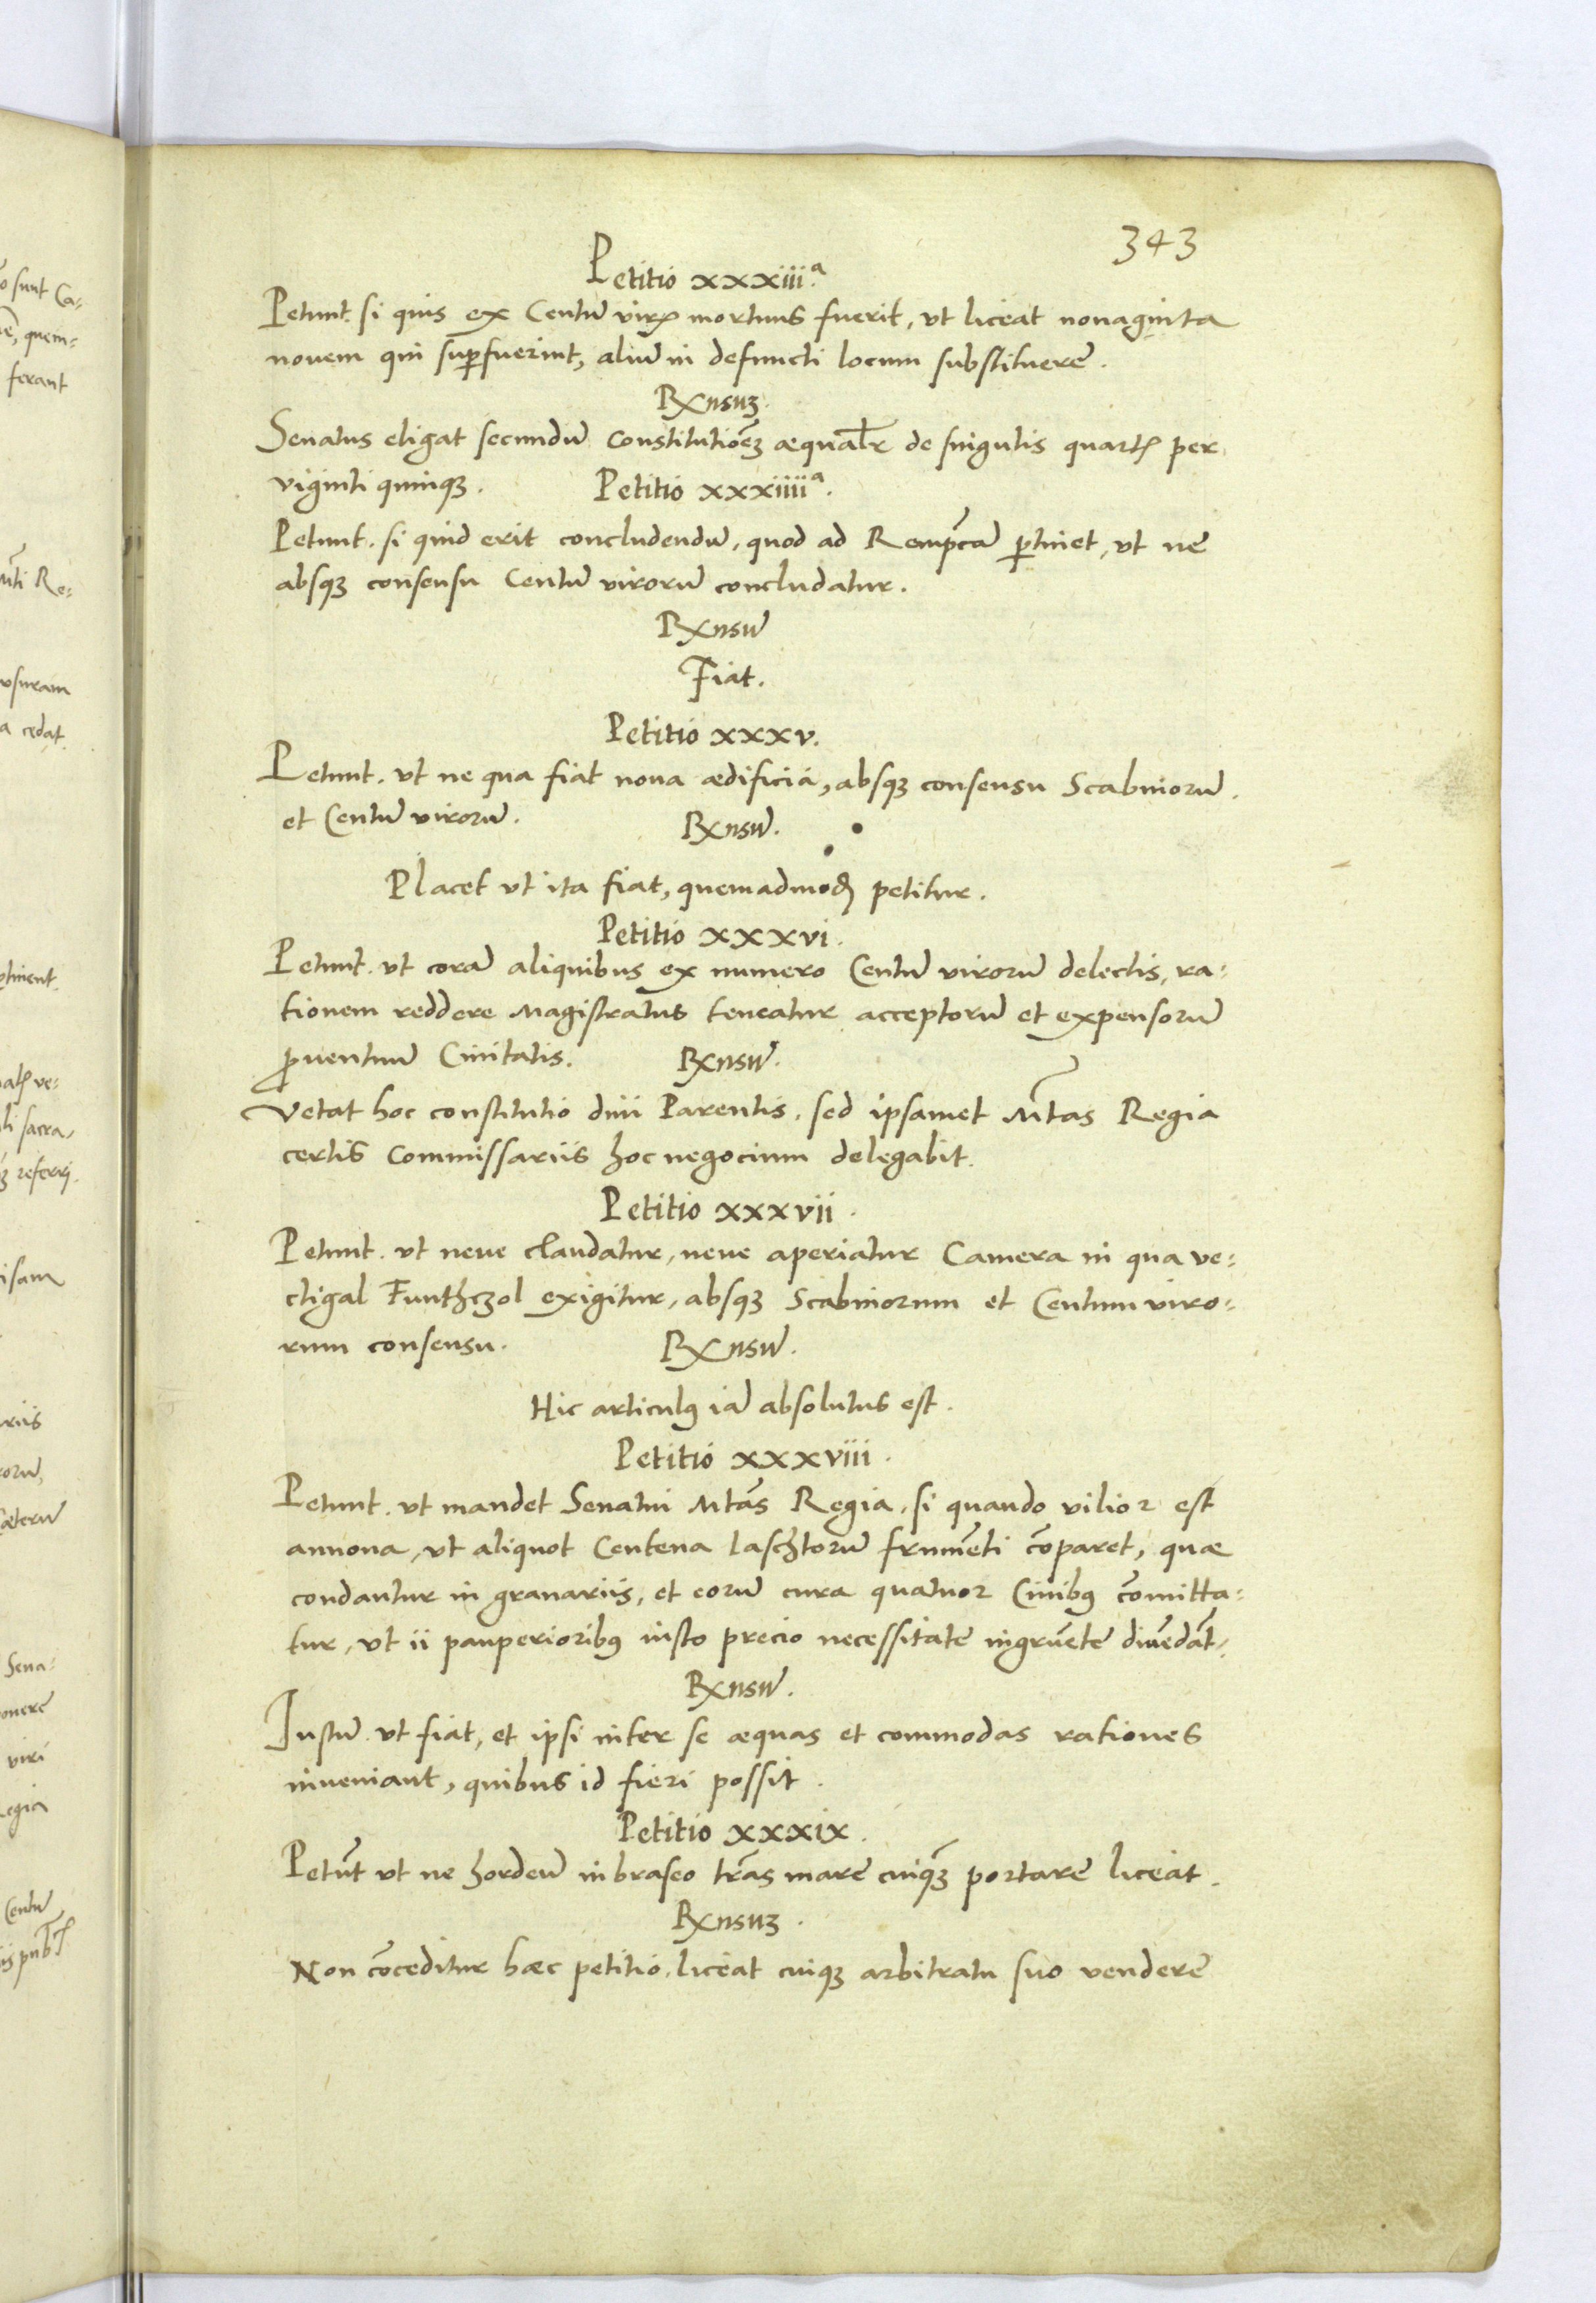 343
Petitio xxxiii.ª
Petunt. si quis ex Centũ virꝝ mortuus fuerit, vt liceat nonaginta
nouem qui suꝑfuerint, aliũ in defuncti locum substituere.
Rx̄nsuʒ.
Senatus eligat secundũ Constitutiõeʒ æqualr̃ de singulis quartꝭ per
viginti quinqʒ. Petitio xxxiiiiª.
Petunt. si quid erit concludendũ, quod ad Remp̃cã ꝑtinet, vt ne
absqʒ consensu Centũ virorũ concludatur.
Rx̄nsũ
Fiat.
Petitio xxxv.
Petunt. vt ne qua fiãt noua ædificia, absqʒ consensu Scabinorũ
et Centũ virorũ. Rx̄nsũ.
Placet vt ita fiat, quemadmodũ petitur.
Petitio xxxvi.
Petunt. vt corã aliquibus ex numero Centũ virorũ delectis, ra:
tionem reddere Magistratus teneatur acceptorũ et expensorũ
ꝓuentuũ Ciuitatis. Rx̄nsũ.
Vetat hoc constitutio diui Parentis. sed ipsamet M̃tas Regia
certis Commissariis hoc negocium delegabit.
Petitio xxxvii.
Petunt. vt neue claudatur, neue aperiatur Camera in qua ve:
ctigal Funthczol exigitur, absqʒ Scabinorum et Centum viro:
rum consensu. Rx̄nsũ.
Hic articulꝰ iã absolutus est.
Petitio xxxviii.
Petunt. vt mandet Senatui Mtãs Regia. si quando vilior est
annona, vt aliquot Centena laschtorũ frumẽti cõparet, quæ
condantur in granariis, et eorũ cura quatuor Ciuibꝰ cõmitta:
tur, vt ii pauperioribꝰ iusto precio necessitate ingruẽte diuẽdãt.
Rx̄nsũ.
Iustũ vt fiat, et ipsi inter se æquas et commodas rationes
inueniant, quibus id fieri possit.
Petitio xxxix.
Petũt vt ne hordeũ in braseo trãs mare cuiqʒ̃ portare liceat.
Rx̄nsuʒ.
Non cõceditur hæc petitio, liceat cuiqʒ arbitratu suo vendere